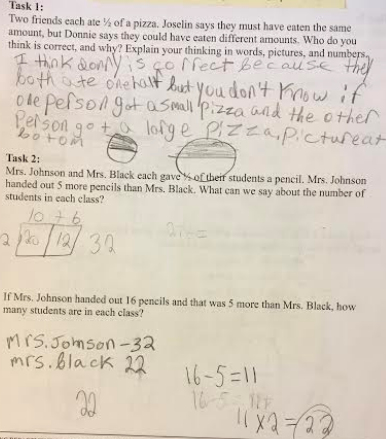 Task 1:
Two friends each ate ½ of a pizza. Joselin says they must have eaten the same
amount, but Donnie says they could have eaten different amounts. Who do you
think is correct, and why? Explain your thinking in words, pictures, and numbers.
I think donny is correct because they
both ate one half but you don't know if
one person got a small pizza and the other
Person got a large pizza, picture at
bottom
Task 2:
Mrs. Johnson and Mrs. Black each gave ½ of their students a pencil. Mrs. Johnson
handed out 5 more pencils than Mrs. Black. What can we say about the number of
students in each class?
10 + 6
2 20 12 32
If Mrs. Johnson handed out 16 pencils and that was 5 more than Mrs. Black, how
many students are in each class?
Mrs. Jomson - 32
mrs. black 22
16-5=11
22
11 x2 = 22